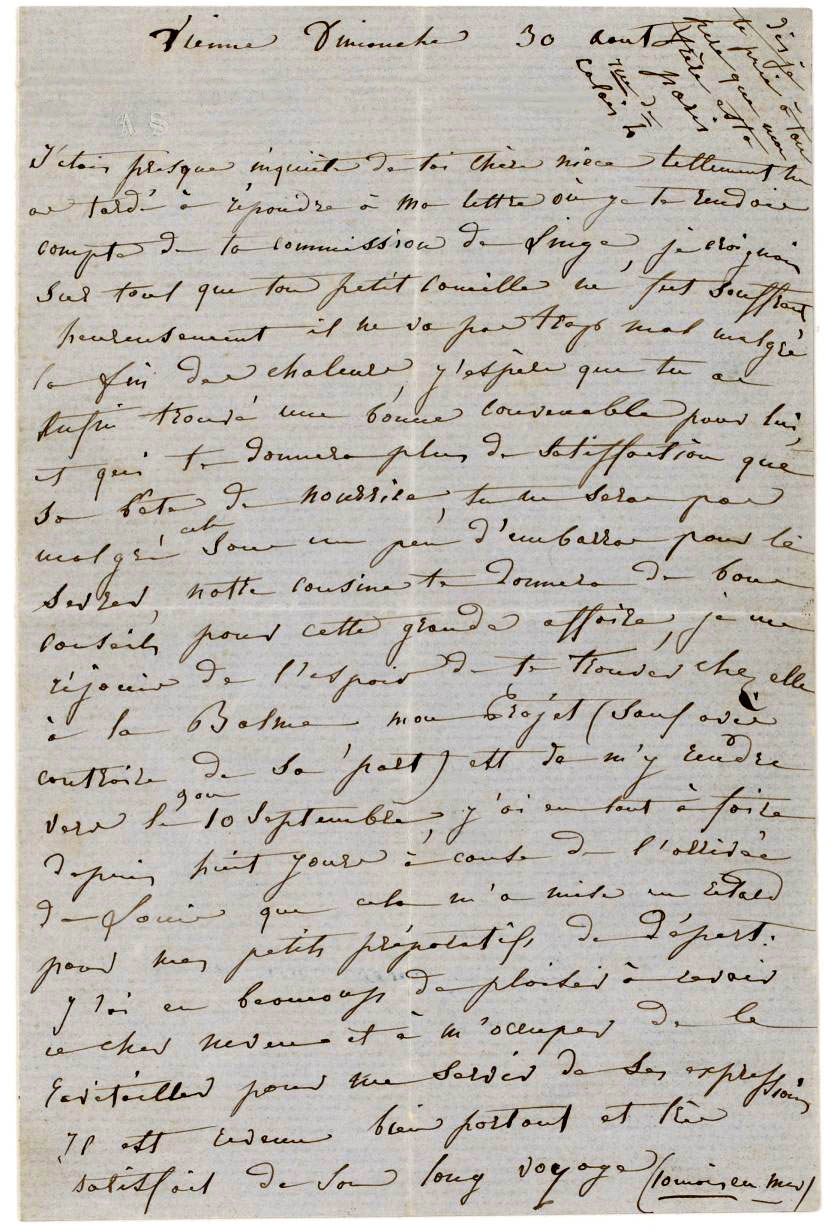 Vienne Dimanche 30 aout
dis je
te prie à ton
père que mon
frère est à
paris
rue de
calais 20
J'etais presque inquiète de toi chère nièce tellement tu
as tardé à répondre à ma lettre où je te rendais
compte de ta commission de linge, je craignais
sur tout que ton petit camille ne fut souffrant
heureusement il ne va pas trop mal malgré
la fin des chaleurs, j'espère que tu as
enfin trouvé une bonne convenable pour lui,
et qui te donnera plus de satisffaction que
sa bête de nourrice, tu ne seras pas
malgré cela sans un peu d'embarras pour le
sevrer, notre cousine te donnera de bons
conseils pour cette grande affaire, je me
réjouis de l'espoir de te trouver chez elle
à la Balme mon projet (sauf avis
contraire de sa part) est de m'y rendre
vers le 9 ou 10 septembre, j'ai eu tant à faire
depuis huit jours à cause de l'arrivée
de Louis que cela m'a mise en retard
pour mes petits préparatifs de départ.
j'ai eu beaucoup de plaisir à revoir
ce cher neveu et à m'occuper de le
ravitailler pour me servir de ses expressions
Il est revenu bien portant et très
satisfait de son long voyage (10 mois en mer)